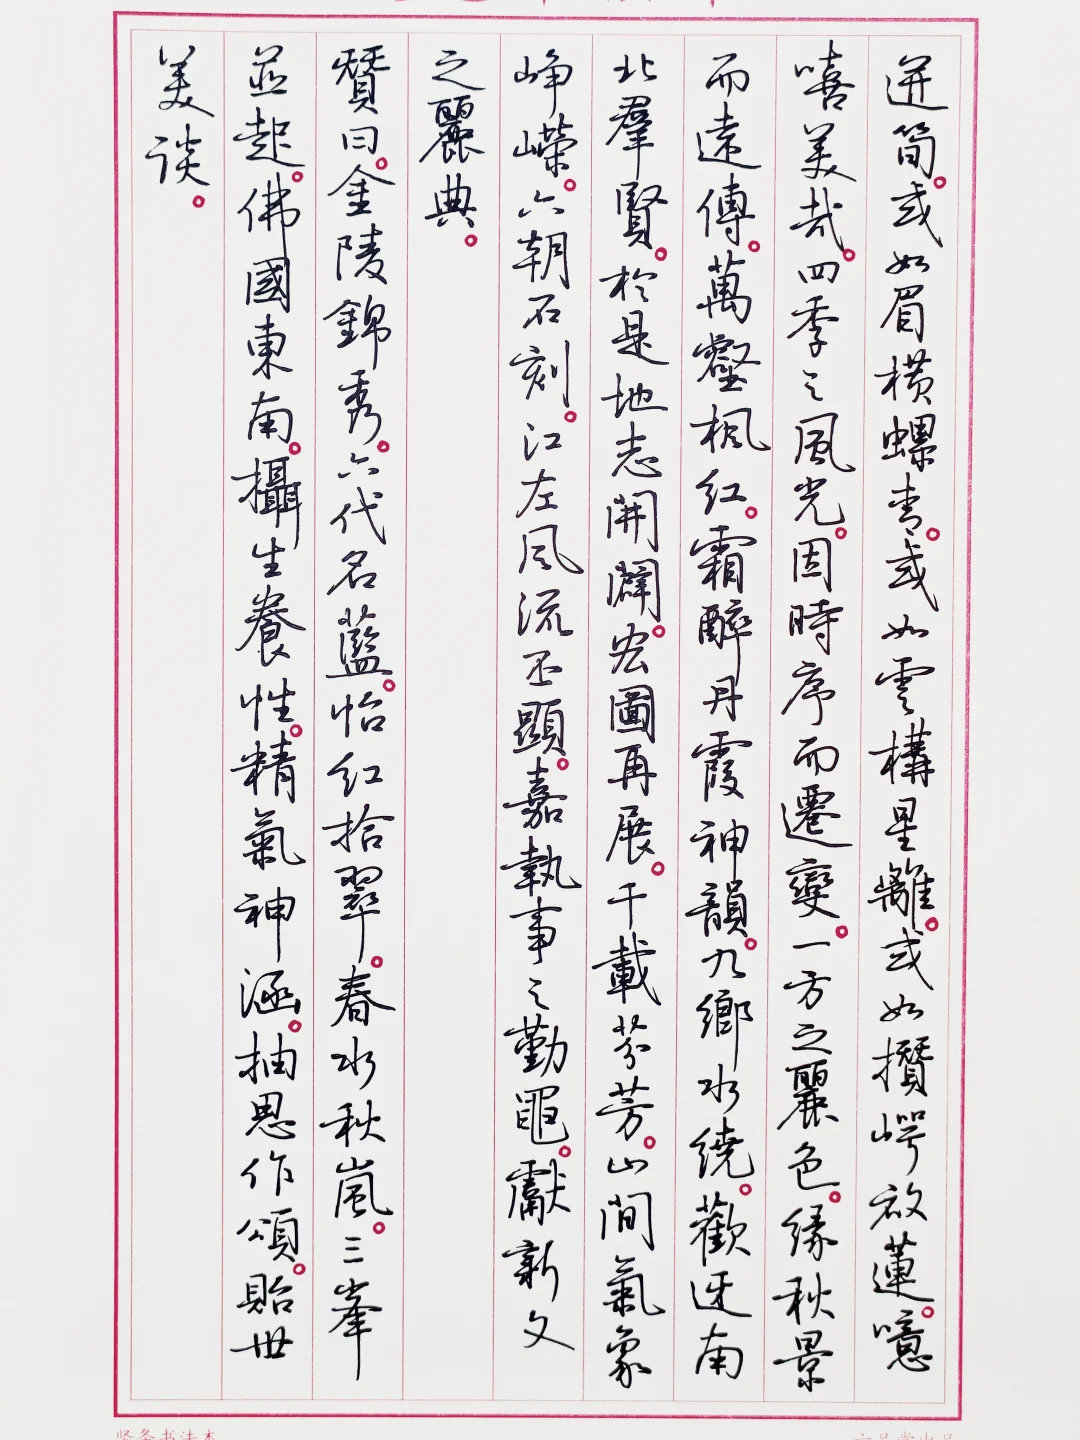 迸筍。或如眉橫螺青。或如雲構星離。或如攢崿放蓮。噫
嘻美哉。四季之風光。因時序而遷變。一方之麗色。緣秋景
而遠傳。萬壑楓紅。霜醉丹霞神韻。九鄉水繞。歡迓南
北羣賢。於是地志開闢。宏圖再展。千載芬芳。山間氣象
崢嶸。六朝石刻。江左風流丕顯。嘉執事之勤黽。獻新文
之麗典。
贊曰。金陵錦秀。六代名藍。怡紅拾翠。春水秋嵐。三峯
並起。佛國東南。攝生養性。精氣神涵。抽思作頌。貽世
美談。
竖条书法本
六品堂出品